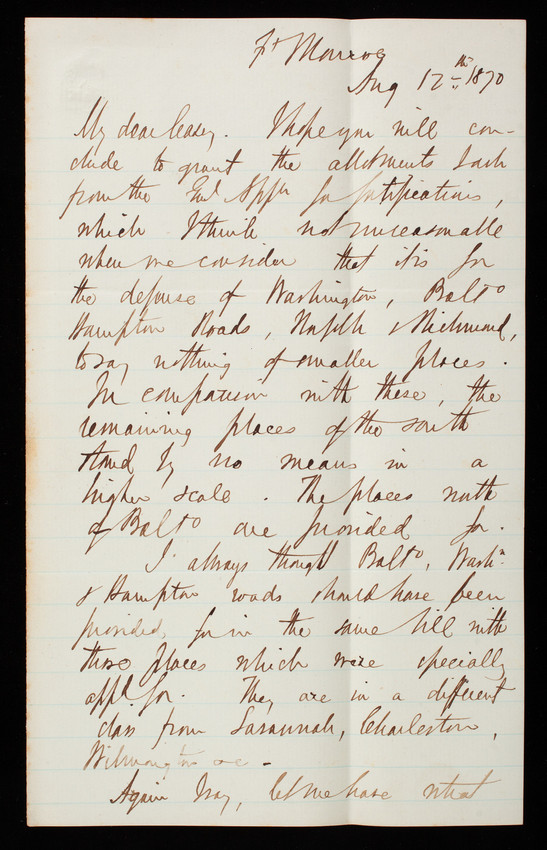 Ft Monroe
Aug 12th 1870
My dear Casey. I hope you will con-
clude to grant the allotments I ask
from the Genl Appn for fortifications,
which I think not unreasonable
when we consider that it is for
the defense of Washington, Balto
Hampton Roads, Norfolk & Richmond,
to say nothing of smaller places.
In comparison with these, the
remaining places of the south
stand by no means in a
higher scale. The places north
of Balto are provided for.
I always thought Balto, Washn
& Hampton roads should have been
provided for in the same bill with
those places which were specially
appd for. They are in a different
class from Savannah, Charleston,
Wilmington &c -
Again I say, let me have what